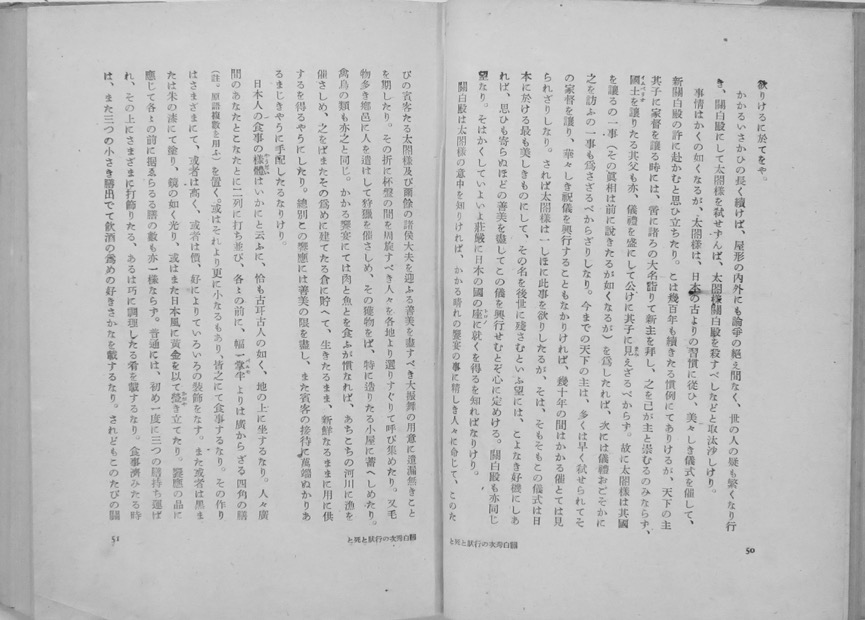 欲りけるに於てをや。
かかるいさかひの長く續けば、屋形の內外にも論爭の絕え間なく、世の人の疑も繁くなり行
き、關白殿にして太閤樣を弑せずんば、太閤樣關白殿を殺すべしなどと取汰沙しけり。
事情はかくの如くなるが、太閤樣は、日本の古よりの習慣に從ひ、美々しき儀式を催して、
新關白殿の許に赴かむと思ひ立ちたり。こは幾百年も續きたる慣例にてありけるが、天下の主
其子に家督を讓る時には、啻に諸ろの大名詣りて新主を拜し、之を己が主と崇むるのみならず、
國主を讓りたる其父も亦、儀禮を盛にして公けに其子に見えざるべからず。故に太閤樣は其國
を讓るの一事(その眞相は前に說きたるが如くなるが)を爲したれば、次には儀禮おごそかに
之を訪ふの一事も爲さざるべからざりしなり。今までの天下の主は、多くは早く弑せられてそ
の家督を讓り、華々しき祝儀を興行することもなかりければ、幾十年の間はかかる催とては見
られざりしなり。されば太閤樣は一しほに此事を欲りしたるが、そは、そもそもこの儀式は日
本に於ける最も美しきものにして、その名を後世に殘さむといふ望には、こよなき好機にしあ
れば、思ひも寄らぬほどの善美を盡してこの儀を興行せむとぞ心に定めける。關白殿も亦同じ
望なり。そはかくしていよいよ莊嚴に日本の國の座に就くを得るを知ればなりけり。
關白殿は太閤樣の意中を知りければ、かかる晴れの饗宴の事に精しき人々に命じて、このた
關白秀次の行狀と死と
50
びの賓客たる太閤樣及び爾餘の諸侯大夫を迎ふる善美を盡すべき大振舞の用意に遺漏無きこと
を期したり。その折に杯盤の間を周旋すべき人々を各地より選りすぐりて呼び集めたり。又毛
物多き鄕邑に人を遣はして狩獵を催さしめ、その獲物をば、特に造りたる小屋に蓄へしめたり。
禽鳥の類も亦之と同じ。かかる饗宴にては肉と魚とを食ふが慣なれば、あちこちの河川に漁を
催さしめ、之をばまたその爲めに建てたる倉に貯へて、生きたるまま、新鮮なるままに用に供
するを得るやうにしたり。總別この饗應には善美の限を盡し、また賓客の接待に萬端ぬかりあ
るまじきやうに手配したるなりけり。
日本人の食事の樣體はいかにと云ふに、恰も古耳古人の如く、地の上に坐するなり。人々廣
間のあなたとこなたとに二列に打ち並び、各〻の前に、幅一掌半よりは廣からざる四角の膳
(註。原語複數を用ふ)を置く。或はそれより更に小なるもあり、皆之にて食事するなり。その作り
はさまざまにて、或者は高く、或者は價、好によりていろいろの裝飾をなす。また或者は黑ま
たは朱の漆にて塗り、鏡の如く光り、或はまた日本風に黃金を以て瑩き立てたり。饗應の品に
應じて各〻の前に据ゑらるる膳の數も亦一樣ならず。普通には、初め一度に三つの膳持ち運ば
れ、その上にさまざまに打飾りたる、あるは巧に調理したる肴を載するなり。食事濟みたる時
は、また三つの小さき膳出でて飮酒の爲めの好きさかなを載するなり。されどもこのたびの關
關白秀次の行狀と死と
51